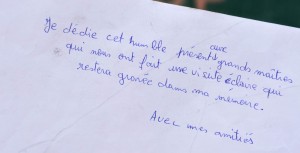 Je dédie cet humble présent aux grands maîtres
qui nous ont fait une visite éclaire qui
restera gravée dans ma mémoire.
Avec mes amitiés